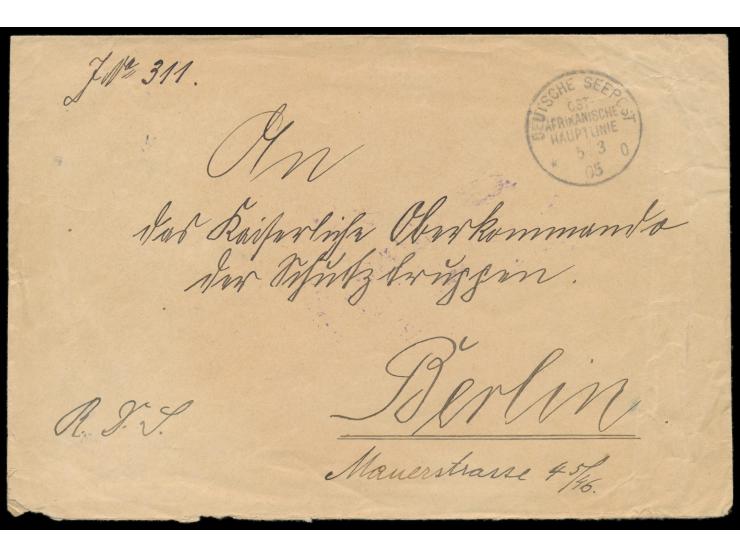 J No 311.
DEUTSCHE SEEPOST
OST-
AFRIKANISCHE
HAUPTLINIE
* 5 3 0
05
An
das Kaiserliche Oberkommando
der Schutztruppen.
Berlin
R. D. S.
Mauerstrasse 45/46.